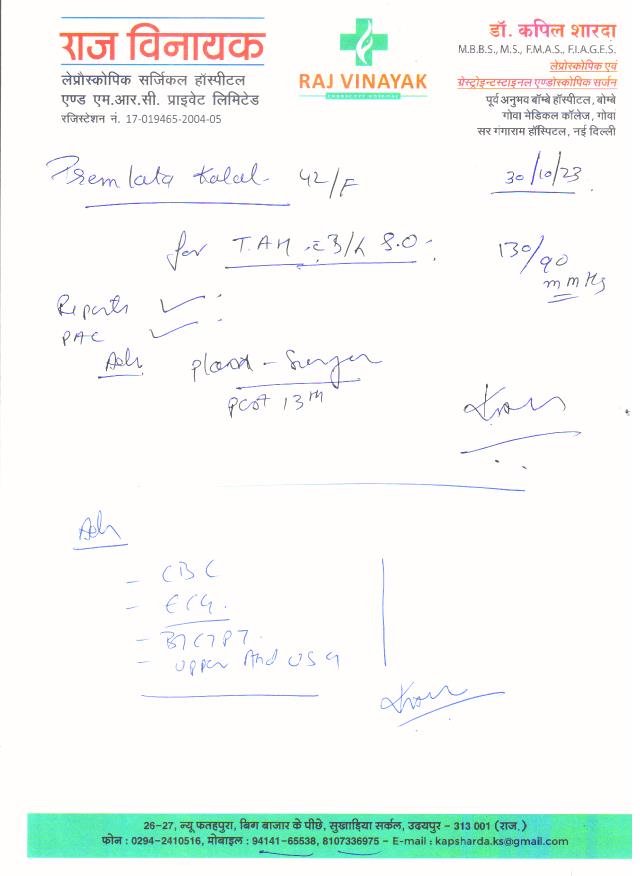 राज विनायक
लेप्रौस्कोपिक सर्जिकल हॉस्पीटल
एण्ड एम.आर.सी. प्राइवेट लिमिटेड
रजिस्टेशन नं. 17-019465-2004-05
RAJ VINAYAK
डॉ. कपिल शारदा
M.B.B.S., M.S., F.M.A.S., F.I.A.G.E.S.
लेप्रोस्कोपिक एवं
ग्रेस्ट्रोइन्टस्टाइनल एण्डोस्कोपिक सर्जन
पूर्व अनुभव बॉम्बे हॉस्पीटल, बोम्बे
गोवा मेडिकल कॉलेज, गोवा
सर गंगाराम हॉस्पिटल, नई दिल्ली
Prem lata Kalal. 42/F
30/10/23
for T.AH c̄ B/L S.O.
130/90
mmHg
Reports ✓
PAC ✓
Adv. Plan - Surgery
post 13th
Adv
- CBC
- ECG.
- BTCTPT.
- Upper Abd USG
26-27, न्यू फतहपुरा, बिग बाजार के पीछे, सुखाडिया सर्कल, उदयपुर - 313 001 (राज.)
फोन : 0294-2410516, मोबाइल : 94141-65538, 8107336975 - E-mail : kapsharda.ks@gmail.com